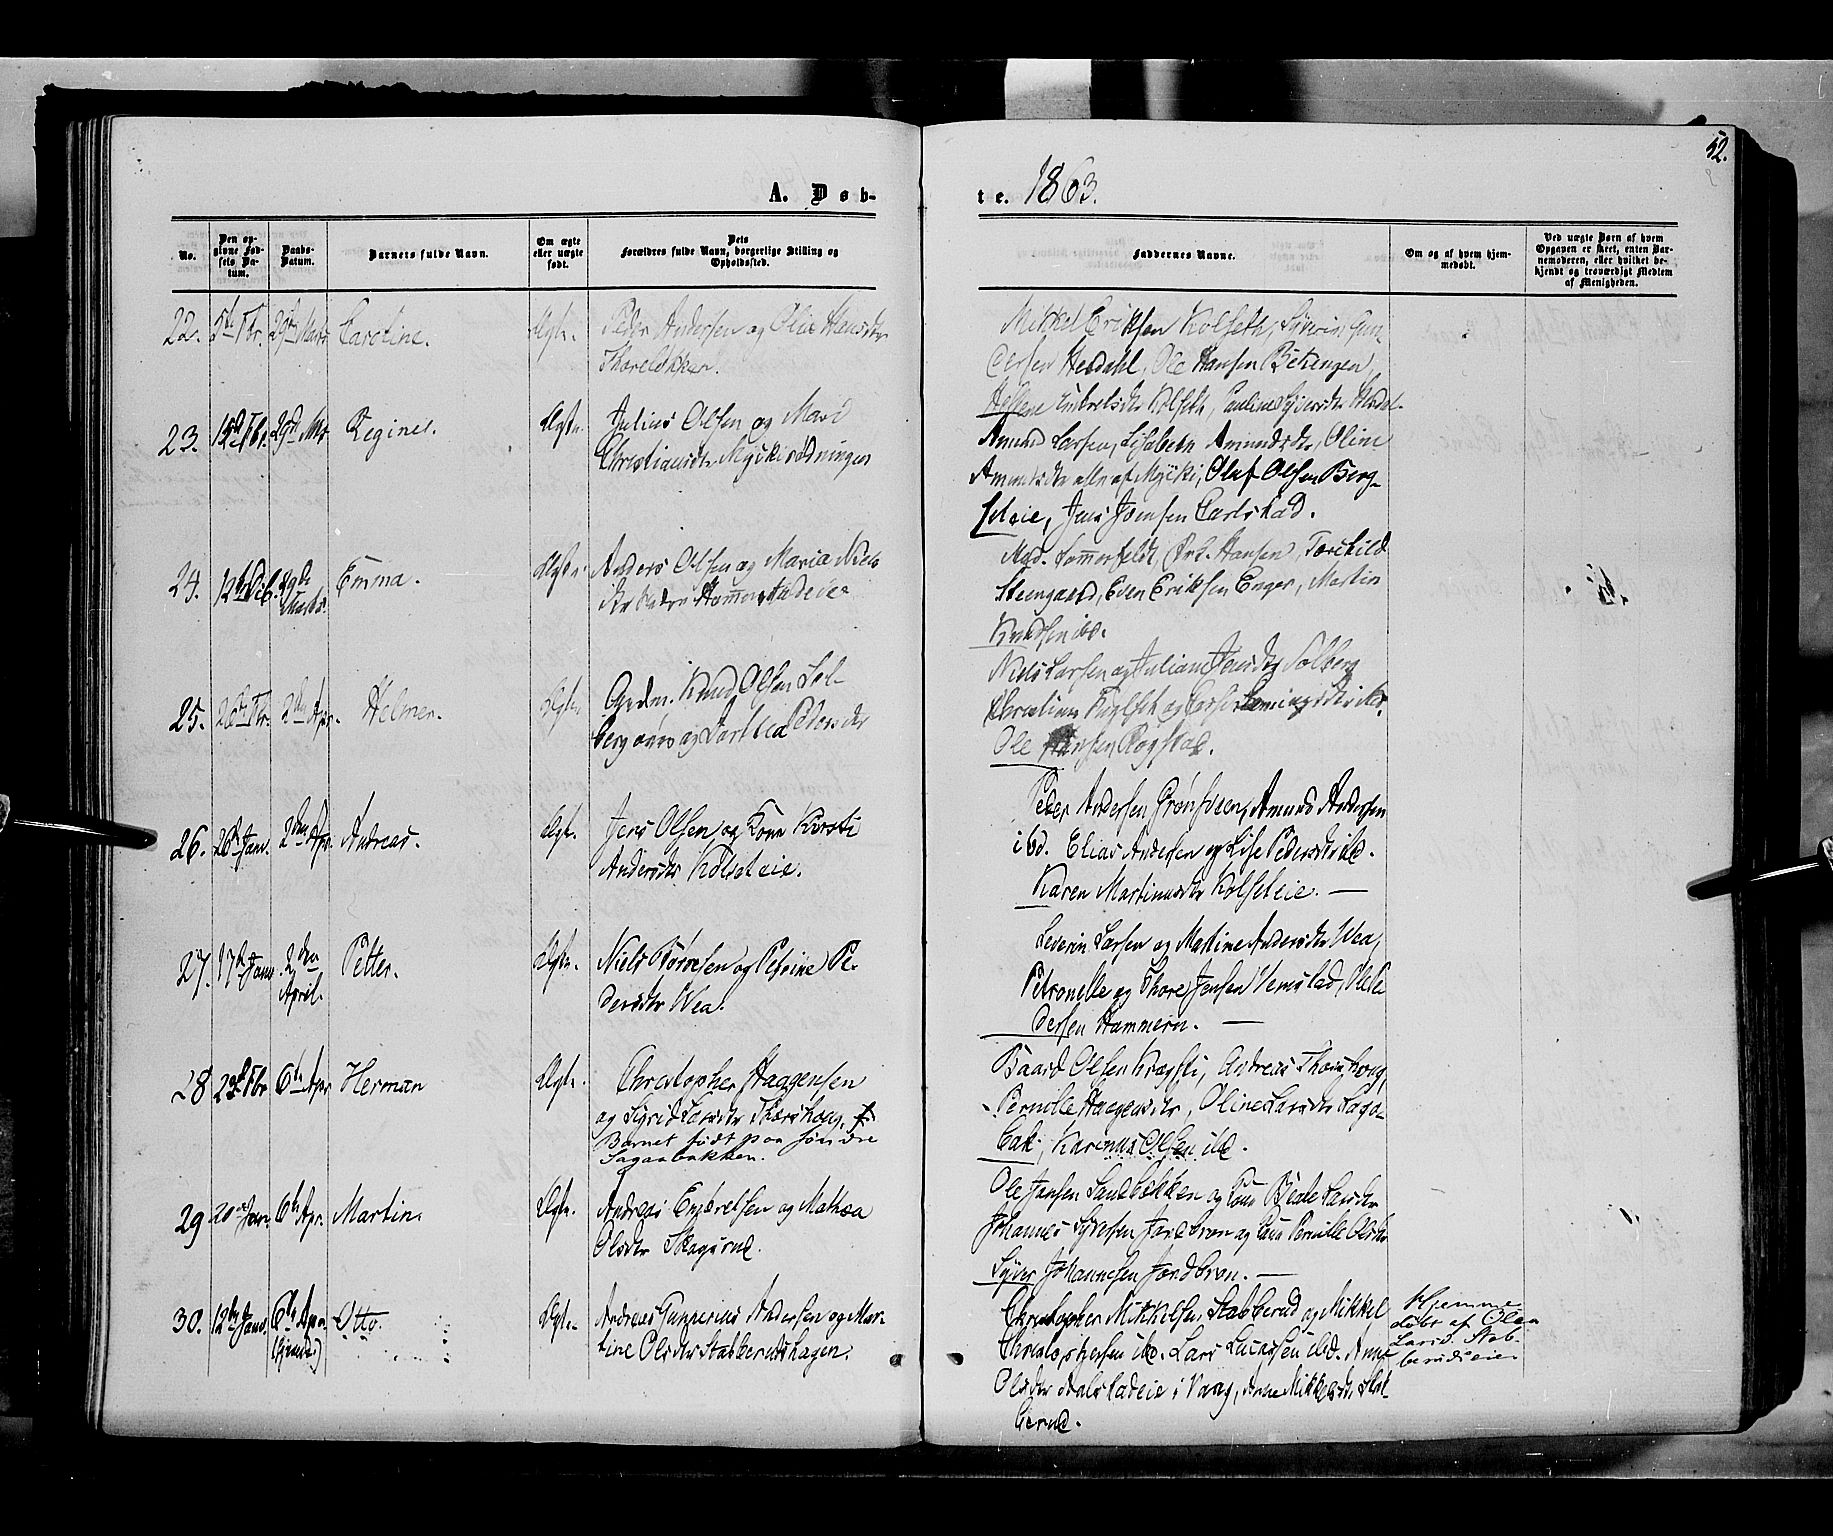 52.
A. Døb-
te. 1863.
No.
Den op-
givne Fød-
sels Da-
tum.
Daabs-
Datum.
Barnets fulde Navn.
Om ægte
eller uægte
født.
Dets
Forældres fulde Navn, borgerlige Stilling og
Opholdssted.
Faddernes Navne.
Om og af hvem hjem-
medøbt.
Ved uægte Børn af hvem
Opgaven er skeet, enten Bar-
nemoderen, eller hvilket be-
kjendt og troværdigt Medlem
af Menigheden.
22. 5te Fbr. 29de Marts Caroline. Ægte. Peder Andersen og Olia Hansdtr
Thoreløkken.
Mikkel Eriksen Kolseth, Syverin Gun-
dersen Hesdahl, Ole Hansen Bekengen,
Embretsdtr Kolseth, Pauline
23. Fbr. 29de Mts Regine. Ægte. Julius Olsen og Mari
Christiansdtr Myckisødningen
Amund Larsen, Lisabeth Amundsdtr, Oline
Amundsdtr alle af Mycki, Oluf Olsen Berg-
seteie, Jens Jensen Carlstad.
24. 12te Dcb. 29de
Marts. Emma. Ægte. Anders Olsen og Maria Niels
dtr Hammerstadeie
Mad. Sommerfeldt, Frk. Hansen, Torchild
Steengaard, Even Eriksen Enger, Martin
Knudsen ibd.
25. 26de Fbr. 2den Apr. Helmer. Ægte. Gaardm. Knud Olsen Sol-
berg øvre og Dorthea Pedersdtr
Niels Larsen og Juliane Jensdtr Solberg
Christian
Ole Hansen Rogstad.
26. 26de Janr. 2den Apr. Andreas. Ægte. Jens Olsen og Kone Kirsti
Andersdtr Kolseteie.
Peder Andersen Grønsveen, Amund Andersen
ibd. Elias Andersen og Lise Pedersdtr ibd.
Karen Martinusdtr Kolseteie. —
27. 17de Janr. 2den
April. Petter. Ægte. Niels Børresen og Petrine Pe-
dersdtr Wea.
Severin Larsen og Martine Andersdtr Wea,
Petronelle og Thore Jensen Vemstad, Ole Pe
dersen Hammern. —
28 23de Fbr 6te Apr Herman Ægte. Christopher Haagensen
og Sigrid Larsdtr Thorshoug,
Barnet født paa søndre
Sagaabakken.
Baard Olsen Kragsti, Andreas Thorshoug,
Pernille Haagensdtr, Oline Larsdtr Saga-
bak, Karenus Olsen ibd.
29 20de Janr. 6te Apr. Martin. Ægte. Andreas Embretsen og Mathea
Olsdtr Skagsrud.
Ole Jensen Sandbækken og Kone Beate Larsdtr
Johannes Syversen Jordbroen og Kone Pernille Olsdtr
Syver Johannesen Jordbroen. —
30. 12te Janr. 6te Apr.
(hjemd.) Otto. Ægte. Andreas Gunnerius Andersen og Mar-
tine Olsdtr Stabberudshagen.
Christopher Mikkelsen Stabberud og Mikkel
Christophersen ibd. Lars Lucassen ibd. Anne
Olsdtr Dalstadeie i Vang, Anne Mikkelsdtr Stab-
berud.
Hjemme
døbt af Olea
Larsd. Stab-
berudseie.